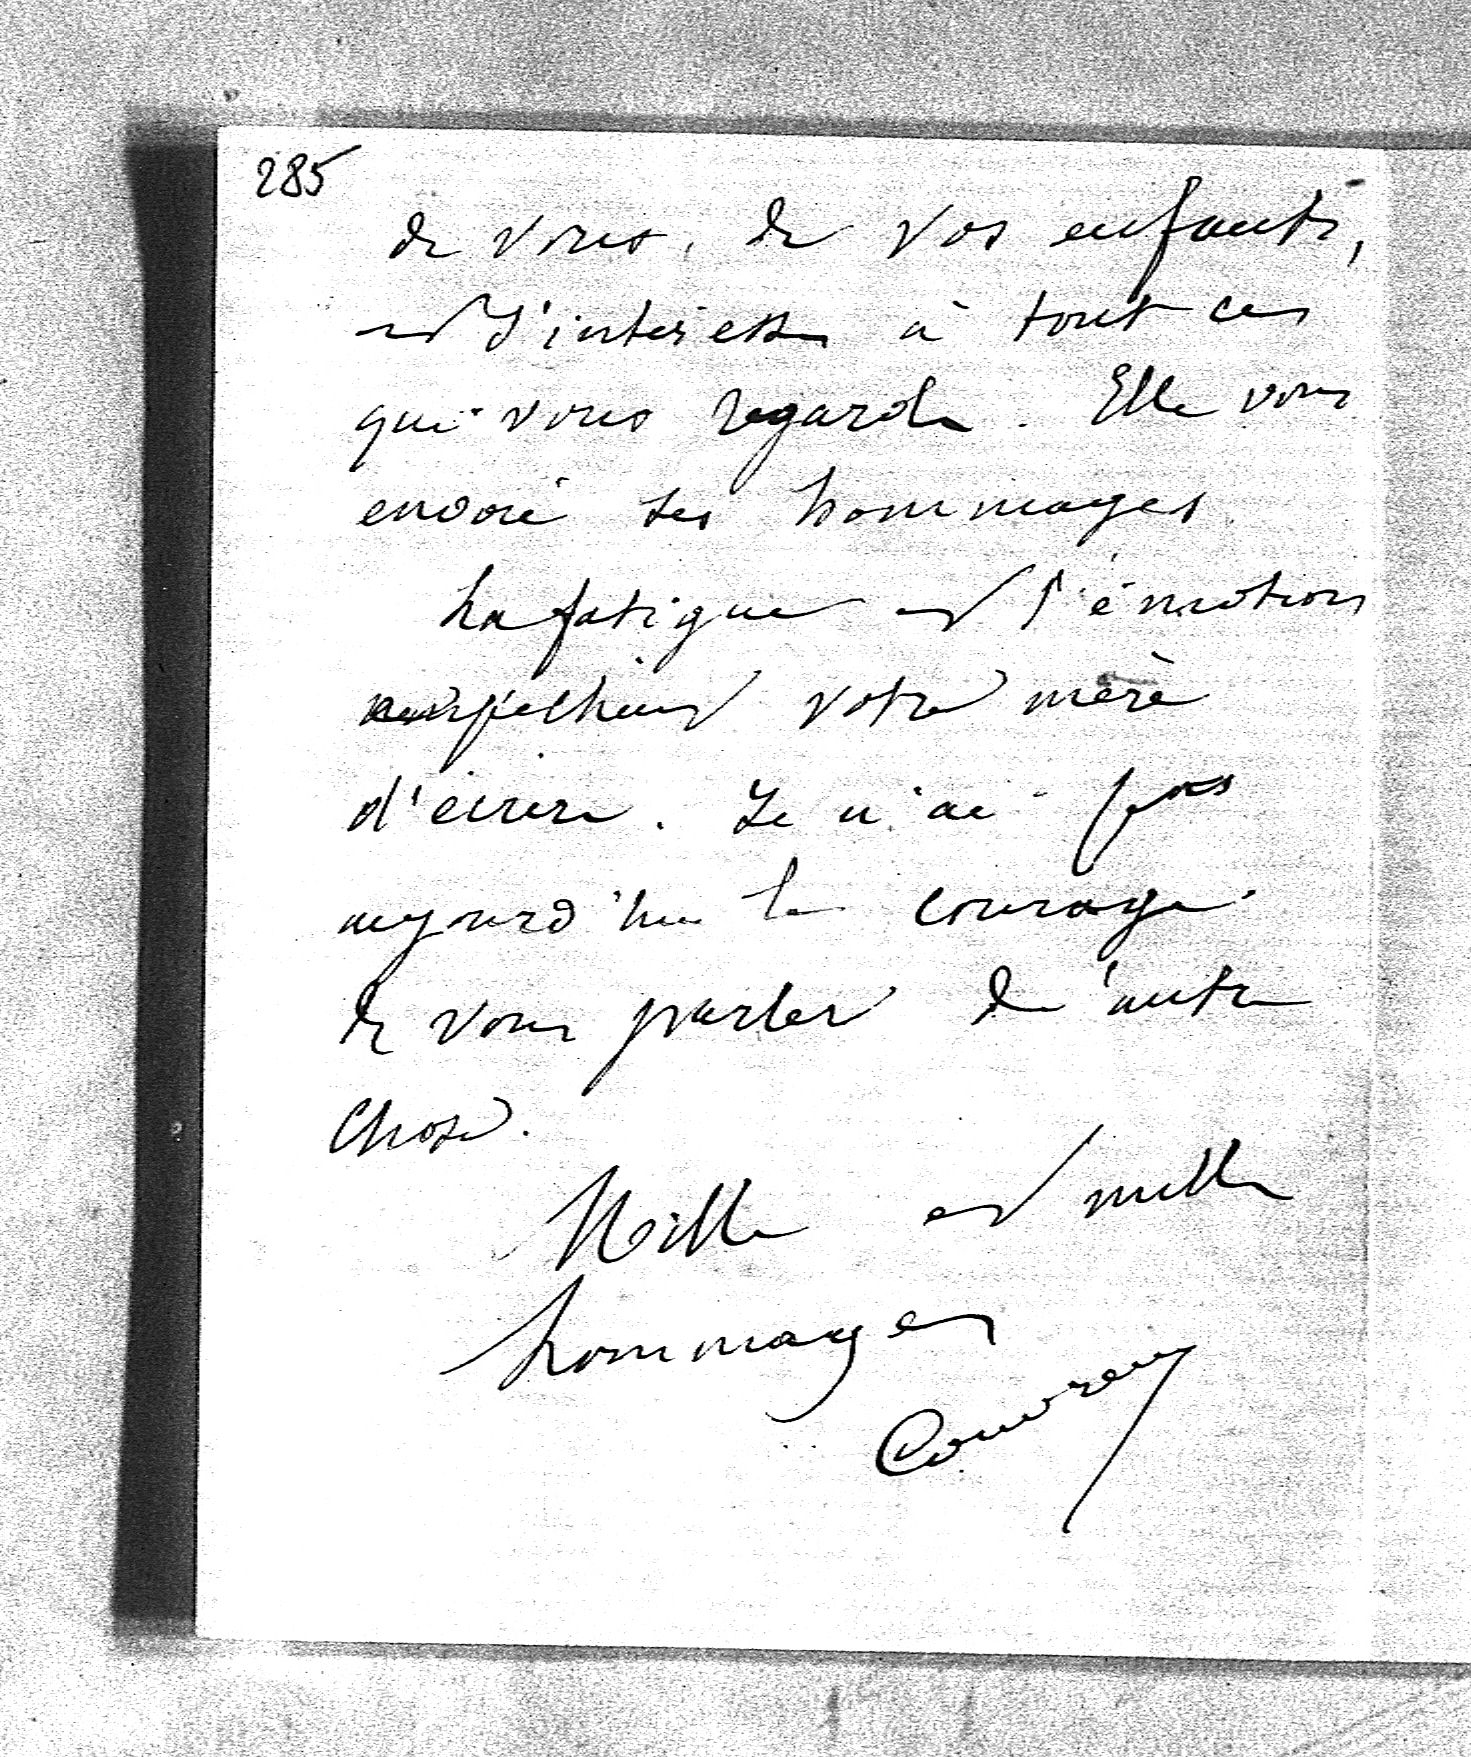 285
de vous, de vos enfants,
et s'intéresse à tout ce
qui vous regarde. Elle vous
envoie ses hommages.
La fatigue et l'émotion
empêchent votre mère
d'écrire. Je n'ai pas
aujourd'hui le courage
de vous parler de autre
chose.
Mille et mille
hommages
Couvreux